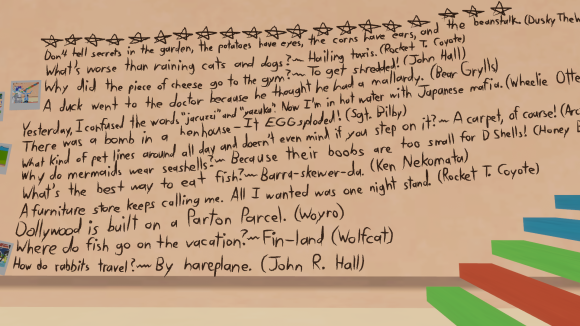 Don't tell secrets in the garden, the potatoes have eyes, the corns have ears, and the beanstalk. (Dusky
What's worse than raining cats and dogs?~ Hailing taxis. (Rocket T. Coyote)
Why did the piece of cheese go to the gym?~ To get shredded! (John Hall)
A duck went to the doctor because he thought he had a mallardy. (Bear Grylls)
Yesterday, I confused the words "jacuzzi" and "yazuka". Now I'm in hot water with Japanese mafia. (Wheelie
There was a bomb in a henhouse- It EGGsploded! (Sgt. Dilby)
What kind of pet lines around all day and doesn't even mind if you step on it?~ A carpet, of course!
Why do mermaids wear seashells?~ Because their boobs are too small for D Shells! (Honey
What's the best way to eat fish?~ Barra-skewer-da. (Ken Nekomata)
A furniture store keeps calling me. All I wanted was one night stand. (Rocket T. Coyote)
Dollywood is built on a Parton Parcel. (Woyro)
Where do fish go on the vacation?~ Fin-land (Wolfcat)
How do rabbits travel?~ By hareplane. (John R. Hall)